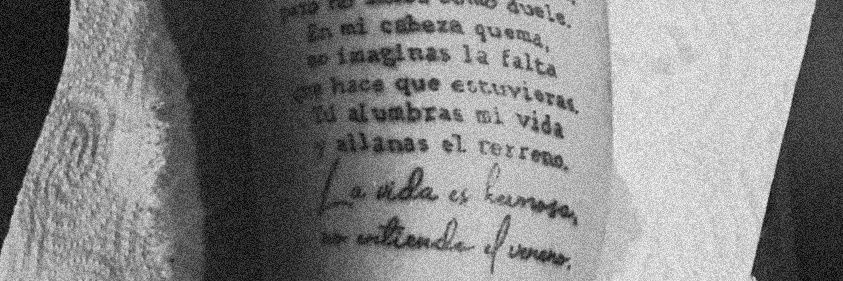 pero no sabes como duele.
En mi cabeza quema,
no imaginas la falta
que hace que estuvieras.
Tú alumbras mi vida
y allanas el terreno.
La vida es hermosa,
no entiendo el veneno.